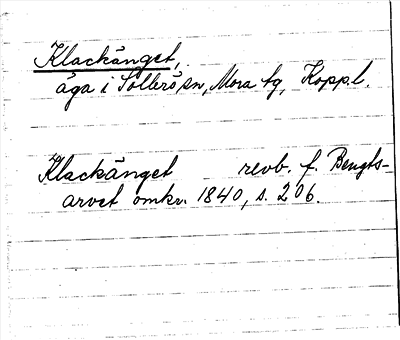 Klackänget,
äga i Sollerö sn, Mora tg, Kopp.l.
Klackänget revb. f. Bengts-
arvet omkr. 1840, s. 206.